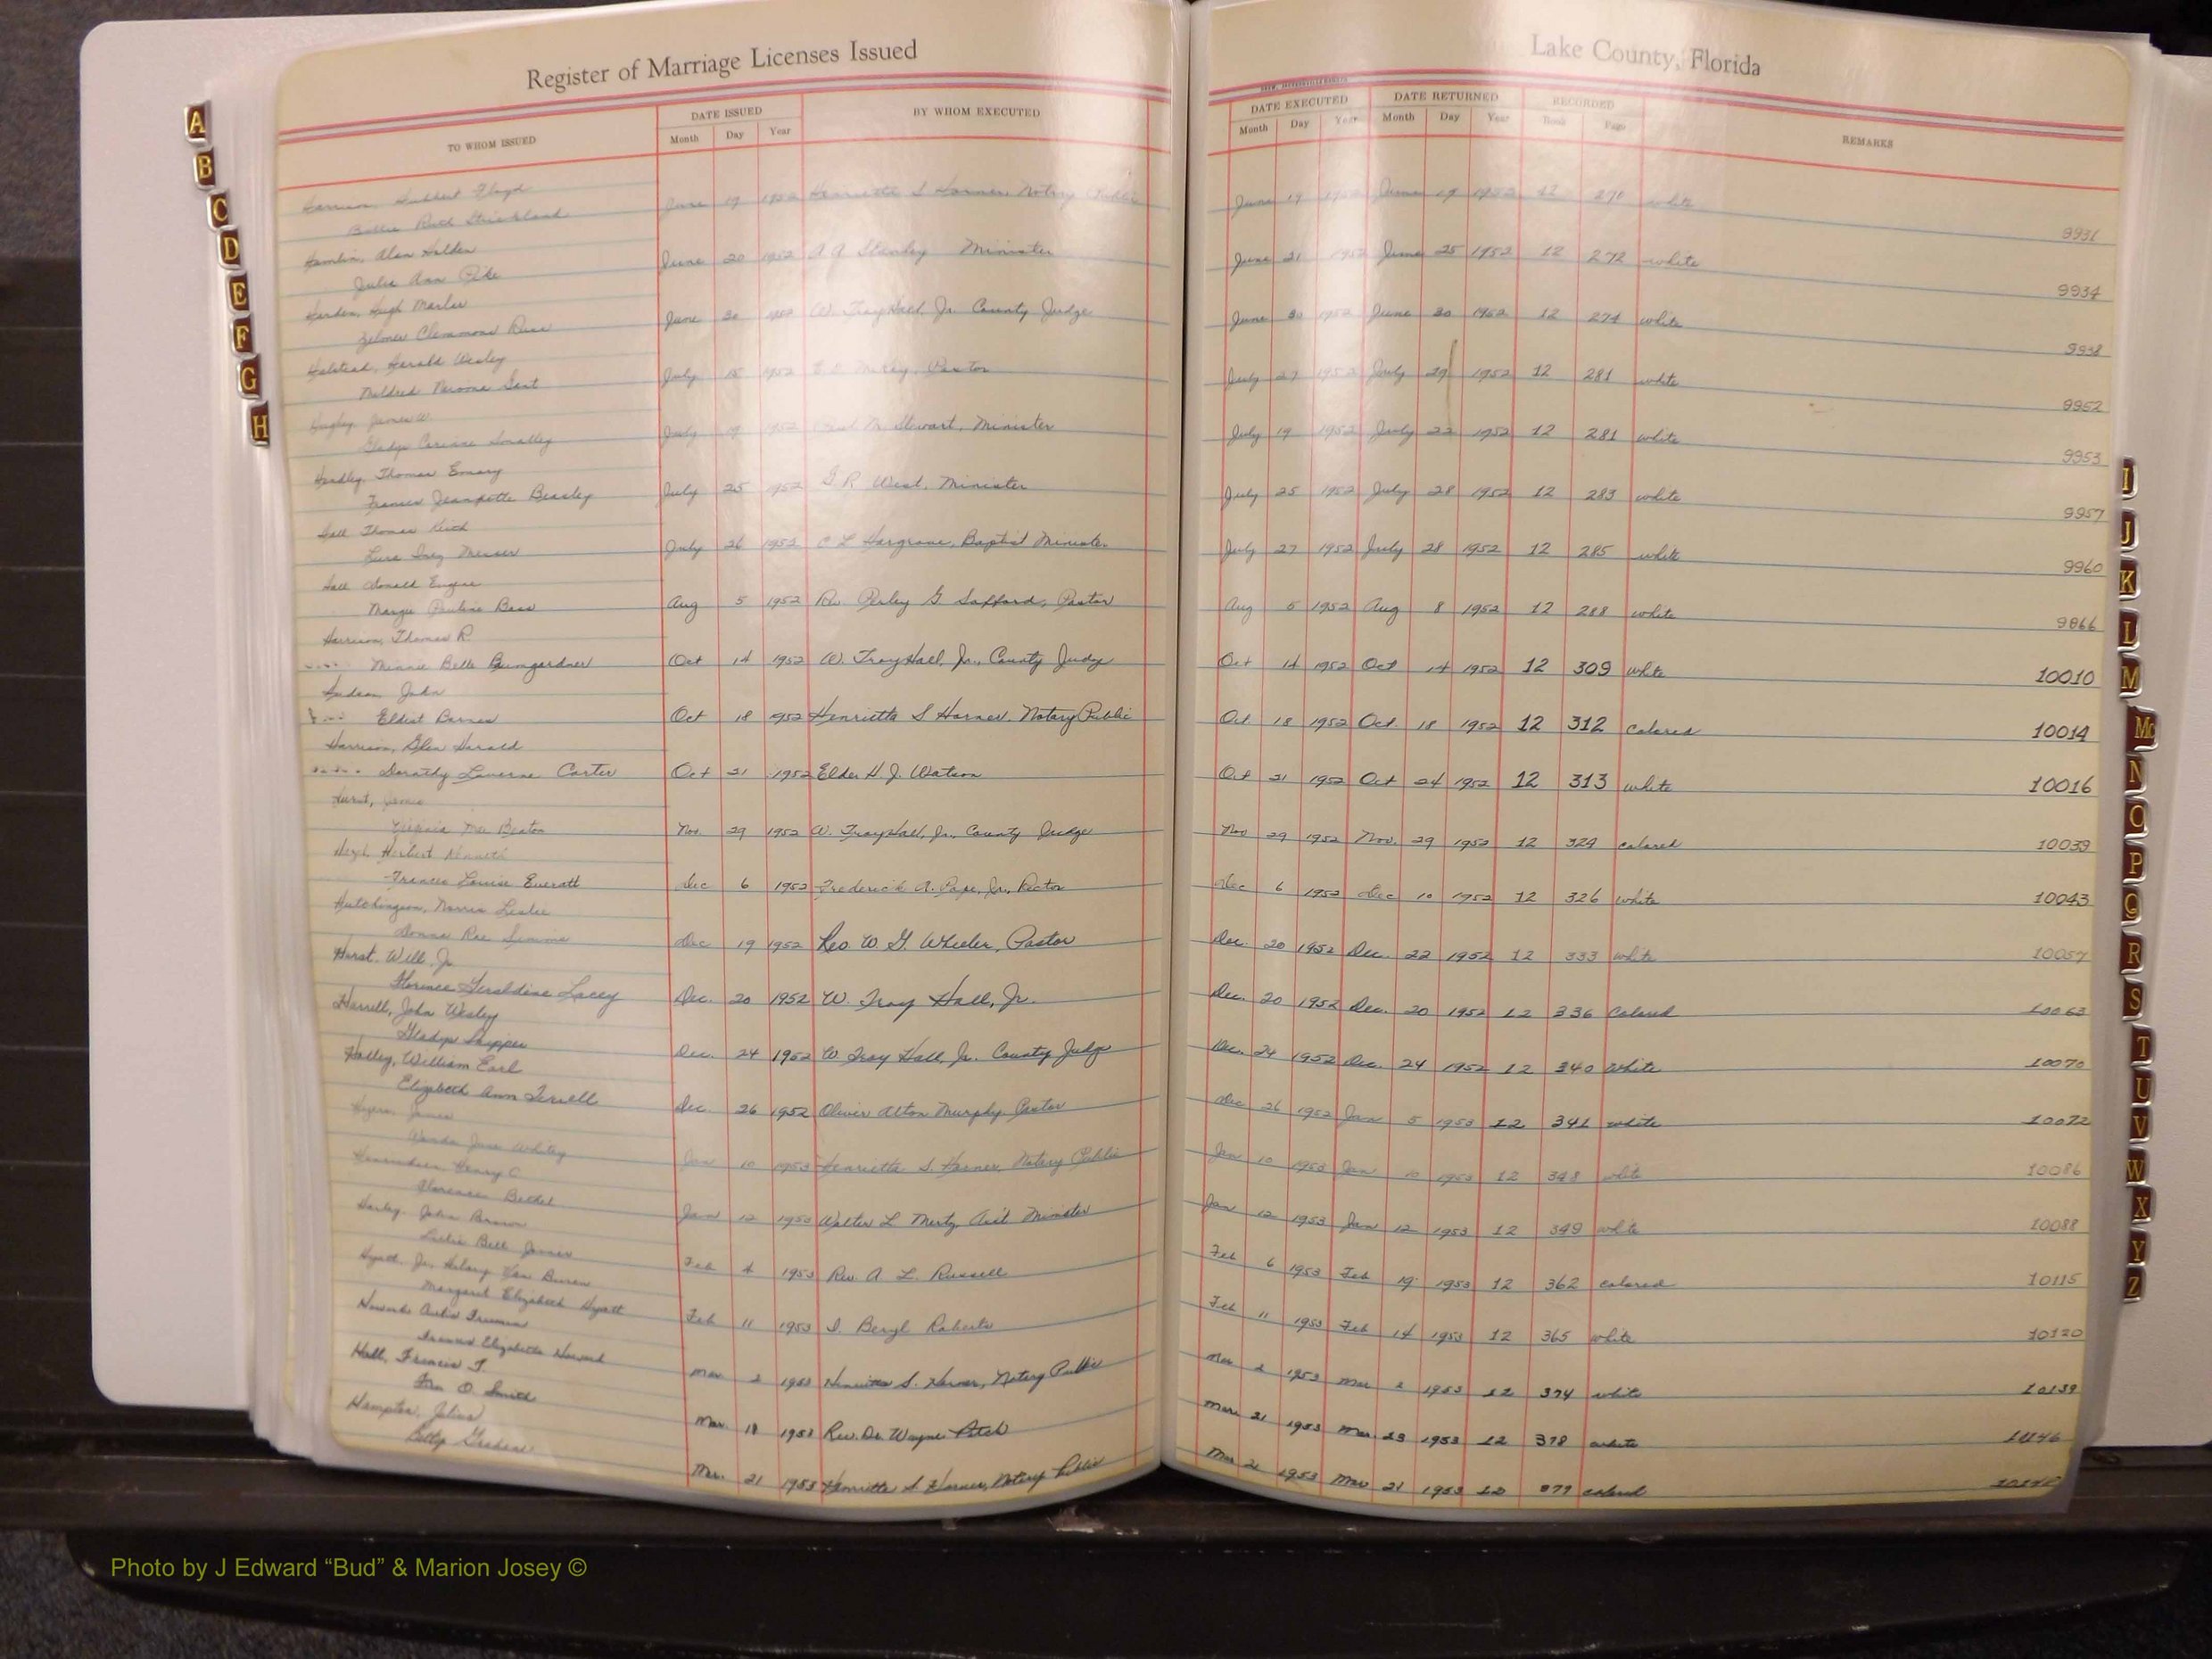 Register of Marriage Licenses Issued
Lake County, Florida
TO WHOM ISSUED
DATE ISSUED
Month Day Year
BY WHOM EXECUTED
DATE EXECUTED
Month Day Year
DATE RETURNED
Month Day Year
RECORDED
Book Page
REMARKS
A
B
C
D
E
F
G
H
I
J
K
L
M
Mc
N
O
P
Q
R
S
T
U
V
W
X
Y
Z
Floyd
Ruth Strickland June 19 1952 Henrietta S Horner, Notary Public June 19 1952 June 19 1952 12 270 white 9931
Hamlin, Alan Holden
Julia Ann Pike June 20 1952 A A Minister June 21 1952 June 25 1952 12 272 white 9934
Harden, Hugh
Clemmons June 30 1952 W. Troy Hall, Jr. County Judge June 30 1952 June 30 1952 12 274 white 9938
Halstead, Gerald Wesley
Mildred July 15 1952 Pastor July 27 1952 July 29 1952 12 281 white 9952
James W.
Gladys Corinne Smalley July 19 1952 M. Stewart, Minister July 19 1952 July 22 1952 12 281 white 9953
Headley, Thomas Emory
Frances Jeannette Beasley July 25 1952 R West, Minister July 25 1952 July 28 1952 12 283 white 9957
Hall Thomas Keith
Inez July 26 1952 C L Hargrove, Baptist Minister July 27 1952 July 28 1952 12 285 white 9960
Hall Donald Eugene
Margie Pauline Bass Aug 5 1952 Rev. Perley G Safford, Pastor Aug 5 1952 Aug 8 1952 12 288 white 9866
Harrison, Thomas R.
Minnie Belle Bumgardner Oct 14 1952 W. Troy Hall, Jr., County Judge Oct 14 1952 Oct 14 1952 12 309 white 10010
Hudson, John
Barnes Oct 18 1952 Henrietta S Horner, Notary Public Oct. 18 1952 Oct. 18 1952 12 312 Colored 10014
Harrison, Glen Harold
Dorothy Laverne Carter Oct 21 1952 Elder H. J. Watson Oct 21 1952 Oct 24 1952 12 313 white 10016
Hurst,
Virginia Mae Nov. 29 1952 W. Troy Hall, Jr., County Judge Nov 29 1952 Nov. 29 1952 12 324 colored 10039
Herbert Kenneth
Frances Louise Everatt Dec 6 1952 Frederick A. Pope, Jr., Rector Dec 6 1952 Dec 10 1952 12 326 white 10043
Hutchinson, Norris Leslie
Donna Rae Simons Dec 19 1952 Rev W. G. Wheeler, Pastor Dec. 20 1952 Dec. 22 1952 12 333 white 10057
Hurst. Will, Jr.
Florence Geraldine Lacey Dec. 20 1952 W. Troy Hall, Jr. Dec. 20 1952 Dec. 20 1952 12 336 Colored 10063
Harrell, John Wesley
Gladys Skipper Dec. 24 1952 W. Troy Hall, Jr. County Judge Dec. 24 1952 Dec. 24 1952 12 340 White 10070
Holley, William Earl
Elizabeth Ann Terrell Dec. 26 1952 Oliver Alton Murphy Pastor Dec 26 1952 Jan 5 1953 12 341 white 10072
James
Wanda June Whitney Jan 10 1953 Henrietta S. Horner, Notary Public Jan 10 1953 Jan 10 1953 12 348 white 10086
Henry C
Florence Bethel Jan 12 1953 Walter L Mertz Minister Jan 12 1953 Jan 12 1953 12 349 white 10088
Harley, John Brown
Bell Feb 4 1953 Rev. A L. Russell Feb 6 1953 Feb 19 1953 12 362 colored 10115
Hyatt, Jr, Hilary Van Buren
Margaret Elizabeth Hyatt Feb 11 1953 D. Beryl Roberts Feb 11 1953 Feb 14 1953 12 365 white 10120
Howard Truman
Elizabeth Howard Mar 2 1953 Henrietta S. Horner, Notary Public Mar 2 1953 Mar 2 1953 12 374 white 10139
Hall, Francis T.
O. Smith Mar. 18 1953 Rev. Dr. Wayne Mar. 21 1953 Mar. 23 1953 12 378 white 10146
Hampton, Julius
Betty Mar. 21 1953 Henrietta S Horner, Notary Public Mar 21 1953 Mar 21 1953 12 379 colored
Photo by J Edward “Bud” & Marion Josey ©